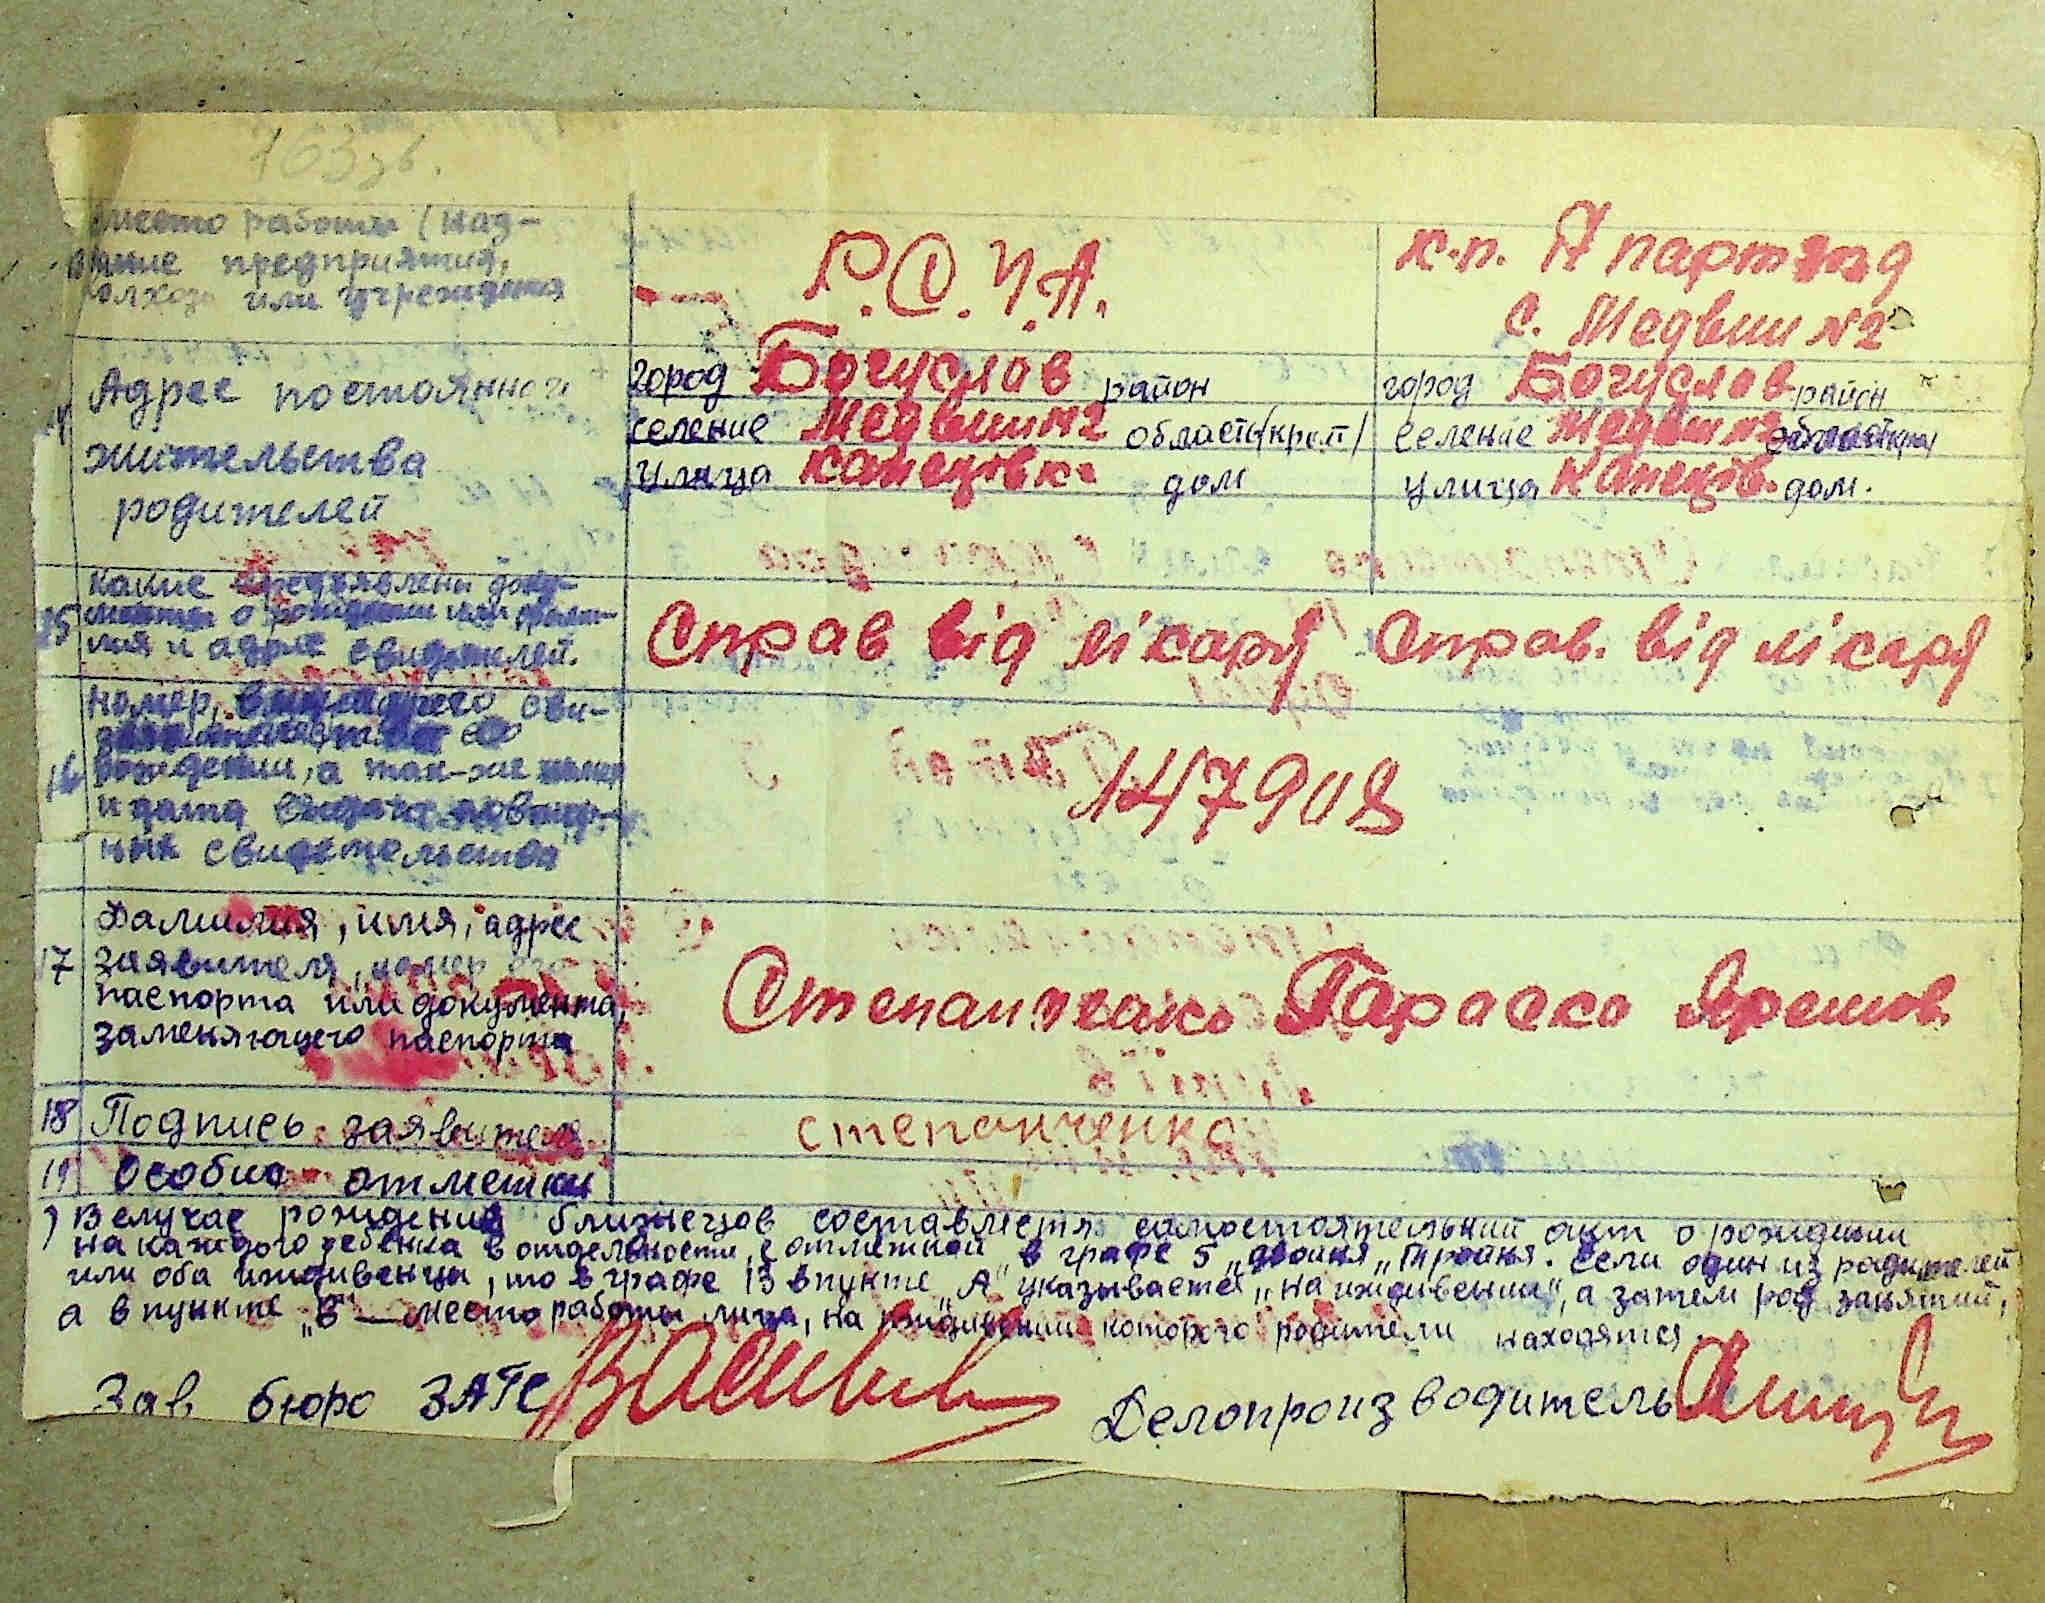 163зв.
место работы (наз-
вание предприятия,
колхоза или учреждения
Р.С.Ч.А.
к.п. Я партзїзд
с. Медвин №2
Адрес постоянного
жительства
родителей
город Богуслав район
селение Медвин №2 область (край)
улица Капецівка дом
город Богуслав район
селение Медвин №2 область (край)
улица Капеців. дом.
15 какие предъявлены доку-
менты о рождении или
лия и адрес свидетелей.
Справ від лікаря Справ. від лікаря
16 номер, сви-
рождении, а так-же номер
и дата выдачи повтор-
ных свидетельств
147908
17 Фамилия, имя, адрес
заявителя, номер его
паспорта или документа,
заменяющего паспорта
Степанченко Тараска Яремов.
18 Подпись заявителя
степанченко
19 Особие отметки
) В случае рождения близнецов составляется самостоятельний акт о рождении
на каждого ребенка в отдельности, с отметкой в графе 5 „двойня„ Тройня. Если один из родителей
или оба иждивенцы, то в графе 13 в пункте „А" указывается „на иждивении", а затем род занятий,
а в пункте „В" — место работы лица, на иждивении которого родители находятся.
Зав бюро ЗАГС Делопроизводитель